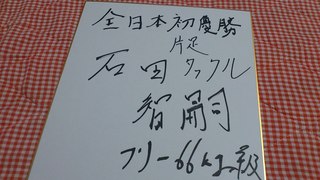 全日本初優勝
片足
石田タックル
智嗣
フリー66kg級